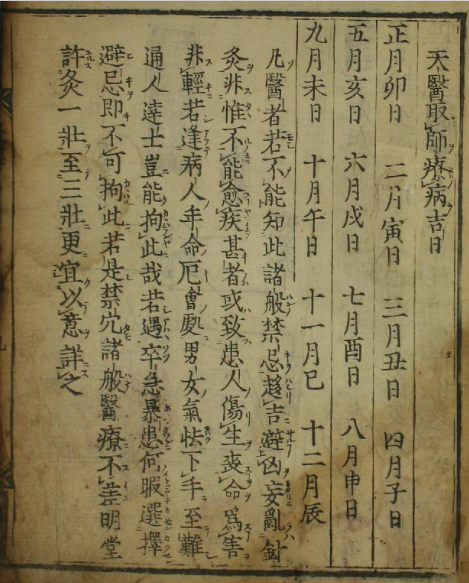 天醫取師療病吉日
正月卯日　二月寅日　三月丑日　四月子日
五月亥日　六月戌日　七月酉日　八月申日
九月未日　十月午日　十一月巳　十二月辰
凡醫者若不能知此諸般禁忌趨吉避凶妄亂針
灸非惟不能愈疾甚者或致患人傷生喪命爲害
非輕若逢病人年命厄會處男女氣怯下手至難
通人達士豈能拘此哉若遇卒急暴患何暇選擇
避忌即不可拘此若是禁穴諸般醫療不差明堂
許灸一壯至三壯更宜以意詳之